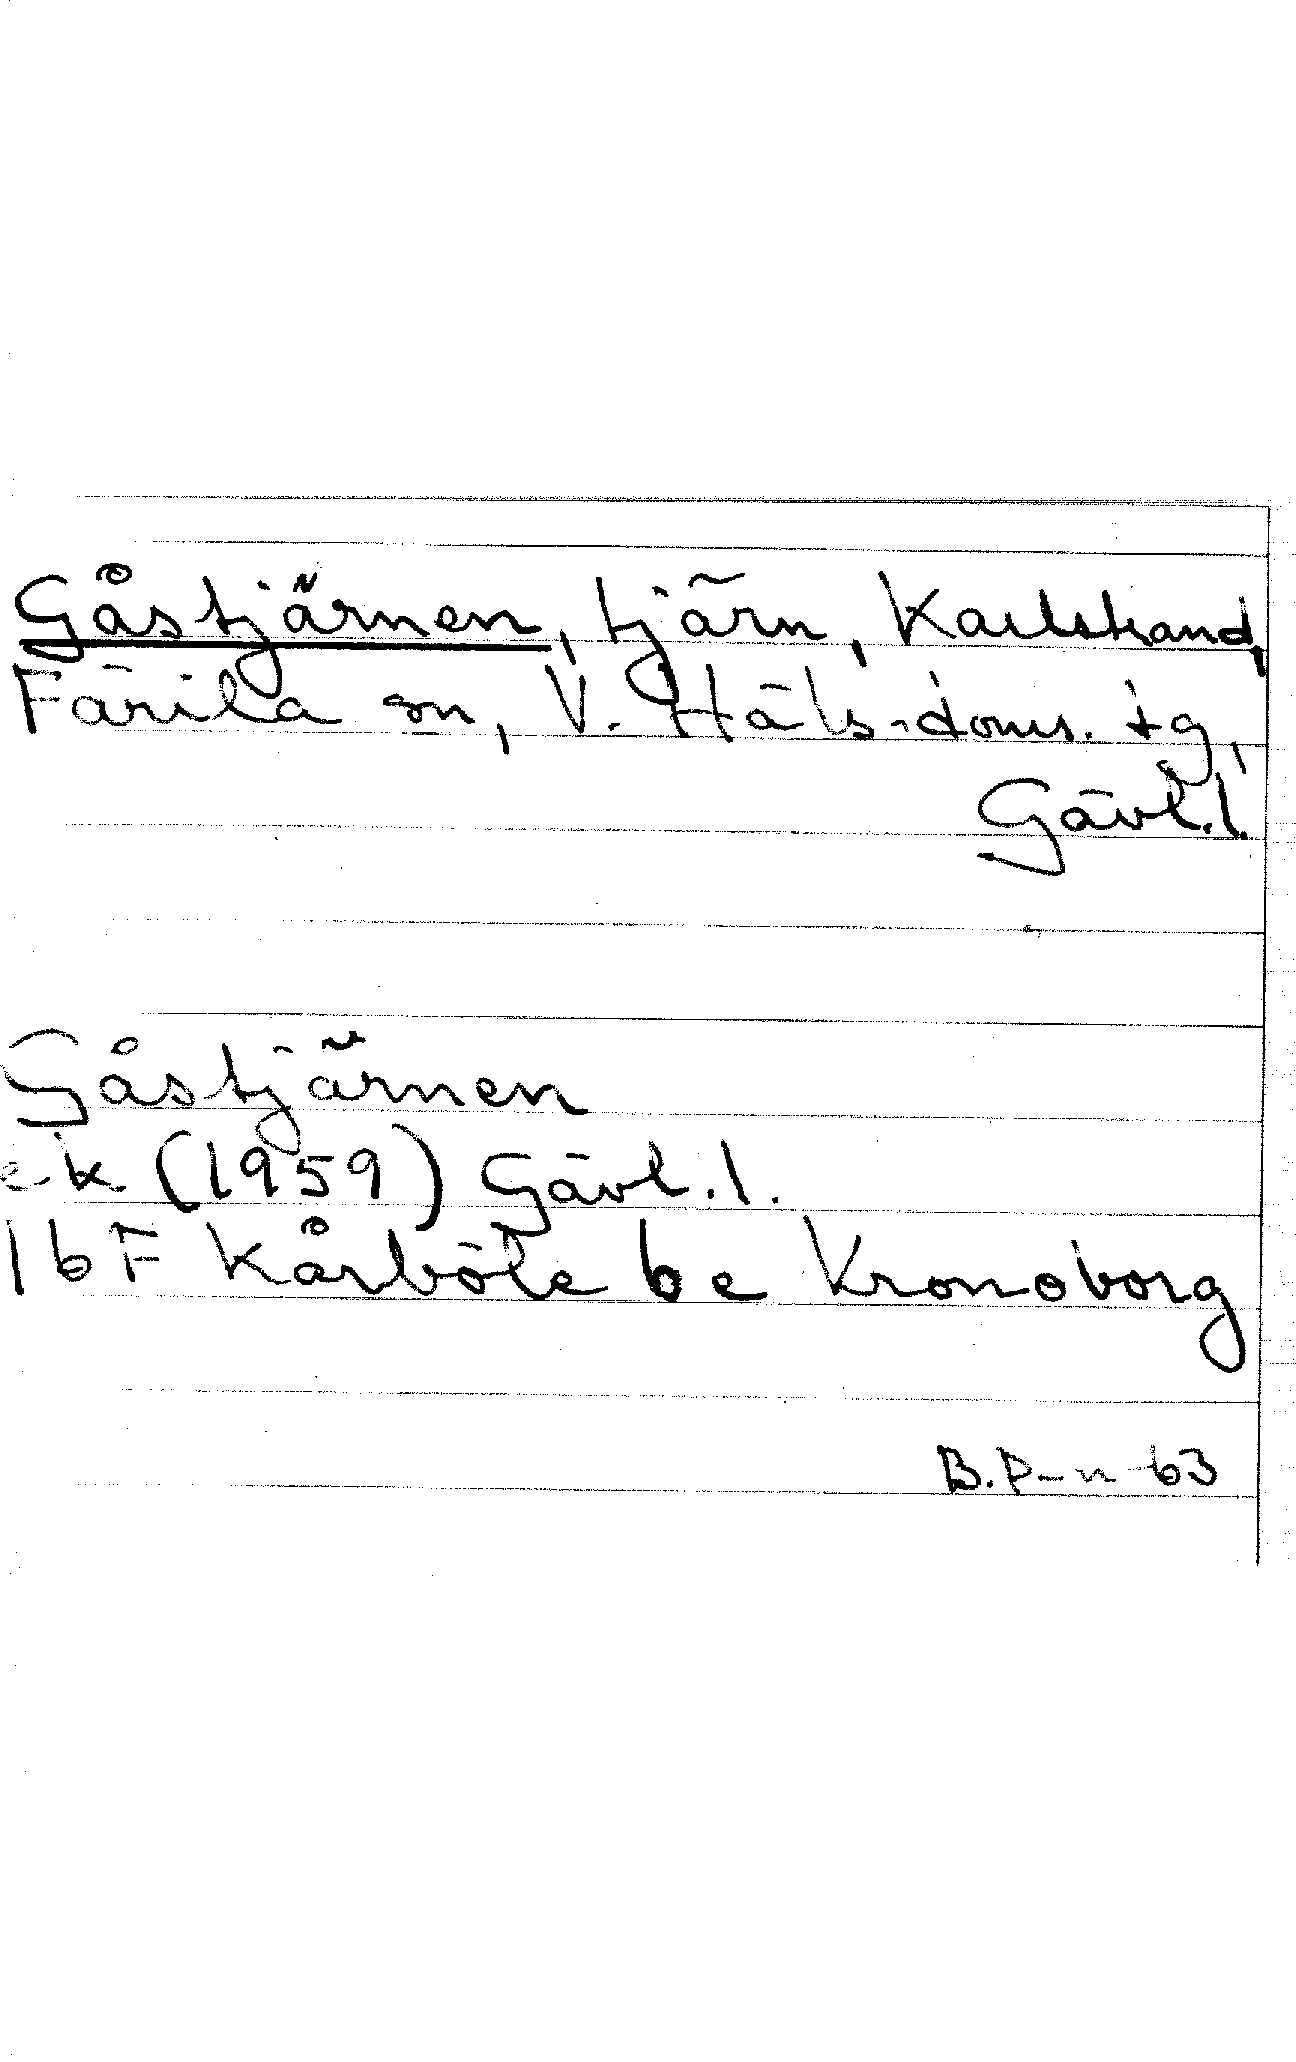 Gåstjärnen, tjärn, Karlstrand,
Färila sn, V. Häls. doms. tg,
Gävl.l.
Gåstjärnen
ek (1959) Gävl.l.
16F Kårböle 6e Kronoborg
B.P-n-63